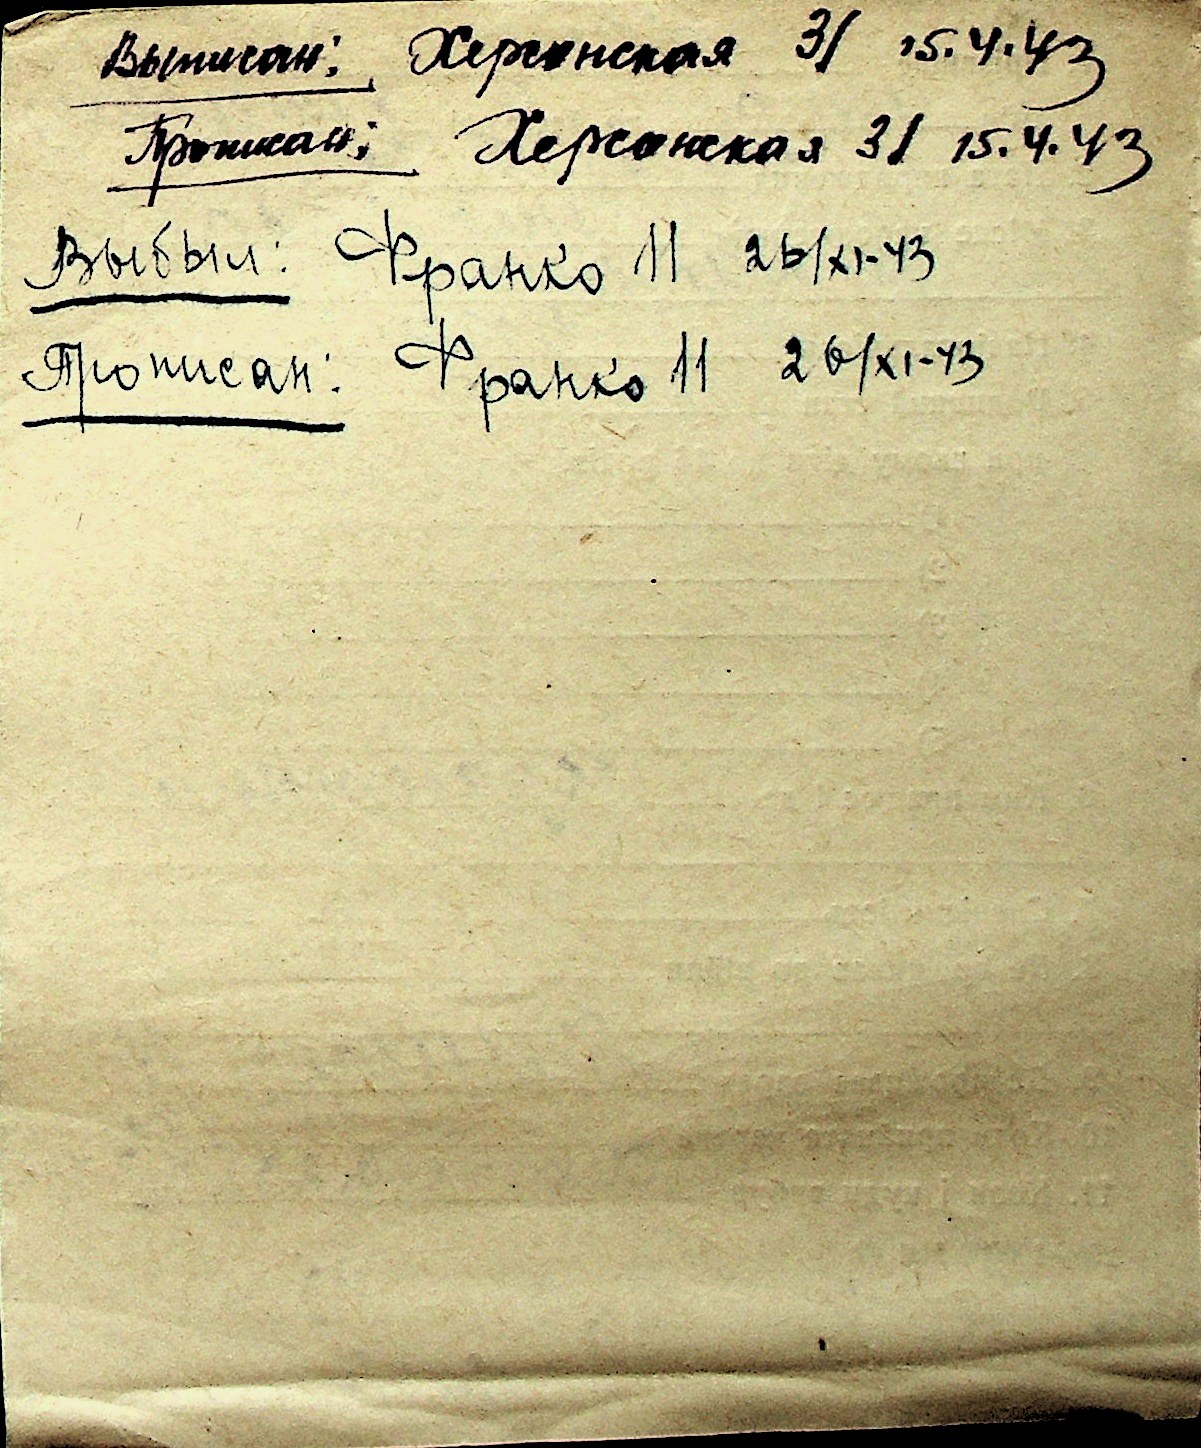 Выписан: Херсонская 31 15.4.43
Прописан: Херсонская 31 15.4.43
Выбыл: Франко 11 26/XI-43
Прописан: Франко 11 26/XI-43